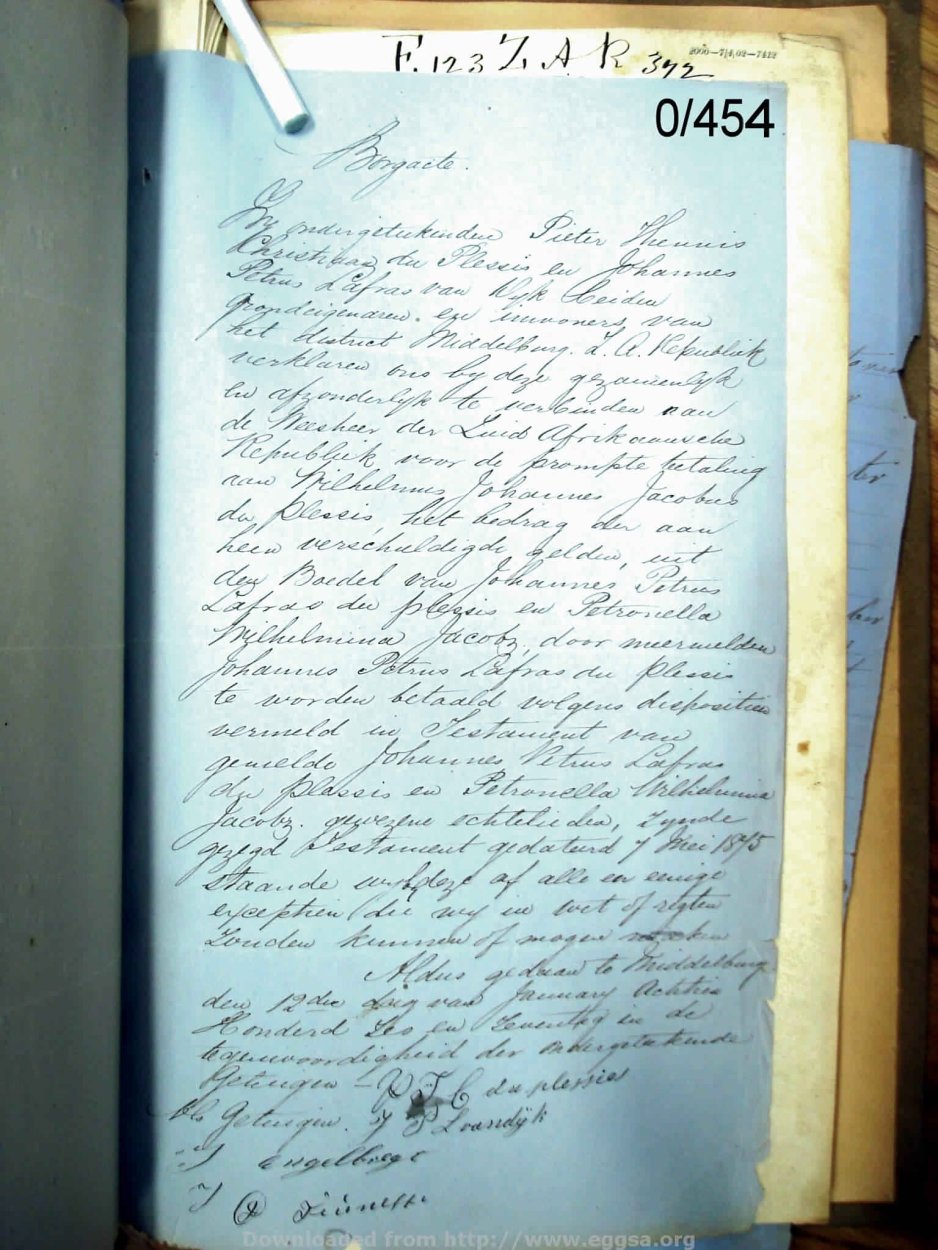 F. 123 Z. A. R 372
2000—7/4,02—7412
0/454
Borgacte.
Wy ondergetekenden Pieter Theunis
Christiaan du Plessis en Johannes
Petrus Lafras van Wyk beiden
grondeigenaren en inwoners van
het district Middelburg. Z. A. Republiek
verklaren ons by deze gezamenlyk
en afzonderlyk te verbinden aan
de Weesheer der Zuid Afrikaansche
Republiek voor de prompte betaling
aan Wilhelmus Johannes Jacobus
du Plessis, het bedrag der aan
hem verschuldigde gelden, uit
den Boedel van Johannes Petrus
Lafras du plessis en Petronella
Wilhelmina Jacobz, door meermelden
Johannes Petrus Lafras du Plessis
te worden betaald volgens dispositien
vermeld in Testament van
gemelde Johannes Petrus Lafras
du Plessis en Petronella Wilhelmina
Jacobz. gewezene echtelieden, zynde
gezegd Testament gedateerd 7 Mei 1875
staande deze af alle en eenige
exceptien die wy in wet of regten
zouden kunnen of mogen
Aldus gedaan te Middelburg
den 12den dag van January Achtien
Honderd Zes en Zeventig in de
tegenwoordigheid der ondergetekende
Getuigen – P T C du plessies
Als Getuigen. J P L vandÿk
J Engelbregt
J
Downloaded from http://www.eggsa.org